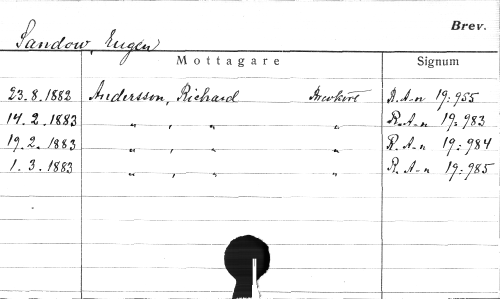 Brev.
Sandow, Eugen
Mottagare Signum
23.8.1882 Andersson, Richard Brevkort R. A-n 19:955
14.2.1883 „ , „ „ R. A-n 19:983
19.2.1883 „ , „ „ R. A-n 19:984
1.3.1883 „ , „ „ R. A-n 19:985